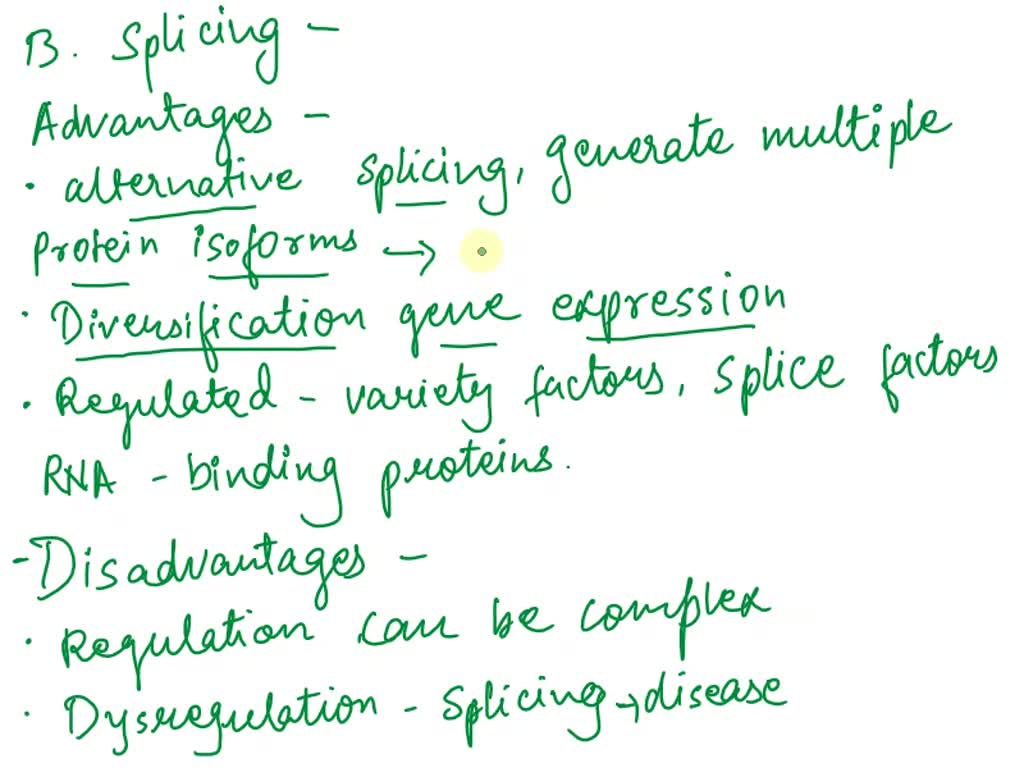 B. Splicing -
Advantages -
· alternative splicing, generate multiple
Protein isoforms →
· Diversification gene expression
· Regulated - variety factors, splice factors
RNA - binding proteins.
- Disadvantages -
· Regulation can be complex
· Dysregulation - splicing → disease